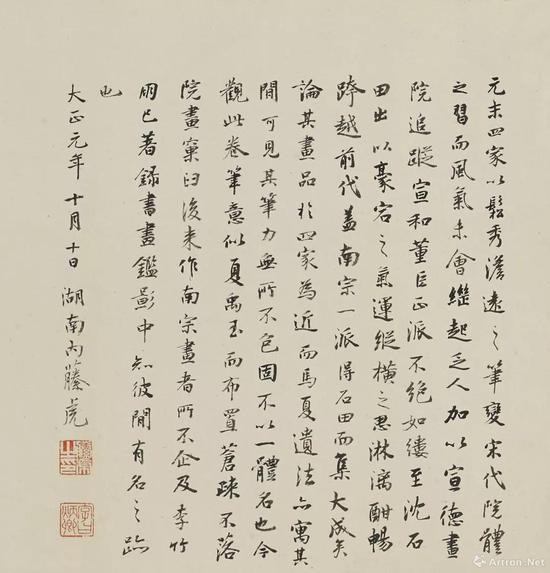 元末四家以鬆秀澹遠之筆變宋代院體
之習而風氣未會繼起乏人加以宣德畫
院追蹤宣和董巨正派不絕如縷至沈石
田出以豪宕之氣運縱橫之思淋漓酣暢
跨越前代蓋南宗一派得石田而集大成矣
論其畫品於四家為近而馬夏遺法亦寓其
間可見其筆力無所不包固不以一體名也今
觀此卷筆意似夏禹玉而布置蒼疎不落
院畫窠臼後來作南宗畫者所不企及李竹
朋已著録書畫鑑影中知彼間有名之跡
也
大正元年十月十日 湖南內藤虎
Artron.Net